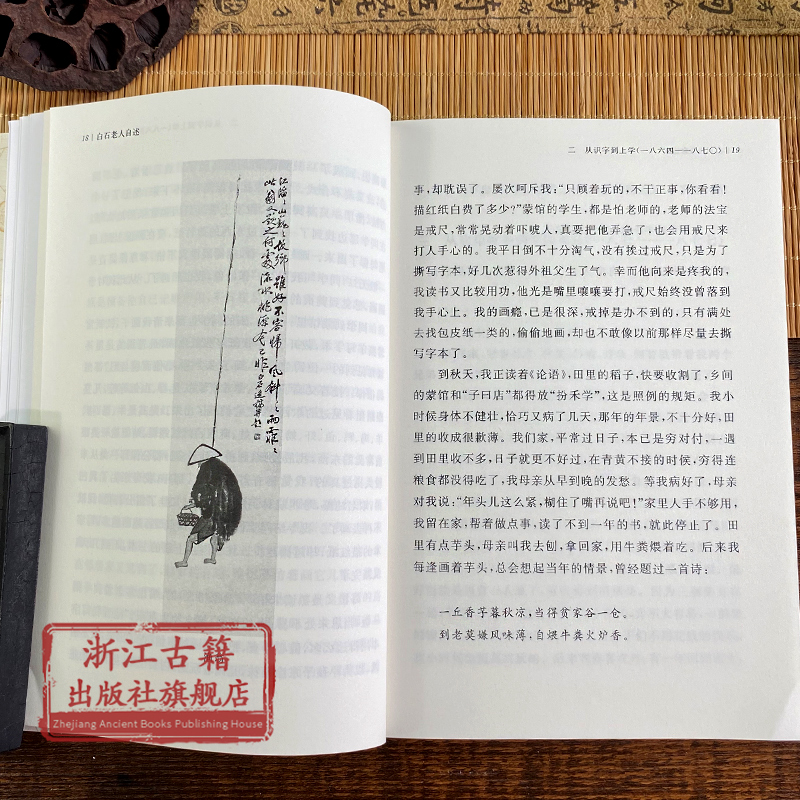 18 | 白石老人自述
浙江古籍
出版社旗舰店
Zhejiang Ancient Books Publishing House
二 从识字到上学(一八六四——一八七〇) | 19
事,却耽误了。屡次呵斥我:“只顾着玩的,不干正事,你看看!
描红纸白费了多少?”蒙馆的学生,都是怕老师的,老师的法宝
是戒尺,常常晃动着吓唬人,真要把他弄急了,也会用戒尺来
打人手心的。我平日倒不十分淘气,没有挨过戒尺,只是为了
撕写字本,好几次惹得外祖父生了气。幸而他向来是疼我的,
我读书又比较用功,他光是嘴里嚷嚷要打,戒尺始终没曾落到
我手心上。我的画瘾,已是很深,戒掉是办不到的,只有满处
去找包皮纸一类的,偷偷地画,却也不敢像以前那样尽量去撕
写字本了。
到秋天,我正读着《论语》,田里的稻子,快要收割了,乡间
的蒙馆和“子曰店”都得放“扮禾学”,这是照例的规矩。我小
时候身体不健壮,恰巧又病了几天,那年的年景,不十分好,田
里的收成很歉薄。我们家,平常过日子,本已是穷对付,一遇
到田里收不多,日子就更不好过,在青黄不接的时候,穷得连
粮食都没得吃了,我母亲从早到晚的发愁。等我病好了,母亲
对我说:“年头儿这么紧,糊住了嘴再说吧!”家里人手不够用,
我留在家,帮着做点事,读了不到一年的书,就此停止了。田
里有点芋头,母亲叫我去刨,拿回家,用牛粪煨着吃。后来我
每逢画着芋头,总会想起当年的情景,曾经题过一首诗:
一丘香芋暮秋凉,当得贫家谷一仓。
到老莫嫌风味薄,自煨牛粪火炉香。